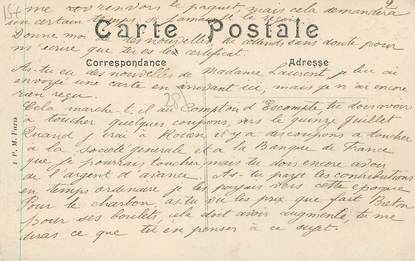 me renverrons le paquet mais cela demandera
un certain temps
Donne moi de tes nouvelles tu attends sans doute pour
Carte Postale
m'écrire que tu es le certificat.
Correspondance
Adresse
As-tu eu des nouvelles de Madame Laurent, je lui ai
envoyé une carte en arrivant ici, mais je n'ai encore
rien reçu.
Cela marche-t-il au Comptoir d'Escompte tu dois avoir
à toucher quelques coupons, vers le quinze Juillet
Quand j'irai à Rouen il y a des coupons à toucher
à la Société générale et à la Banque de France
que je pourrais toucher mais tu dois encore avoir
de l'argent d'avance. As-tu payé les contributions
en temps ordinaire je les payais vers cette époque
Pour le charbon, as-tu vu les prix que fait Breton
pour ses boulets, cela doit avoir augmenté, tu me
diras ce que tu en penses à ce sujet.
A P. M. Paris